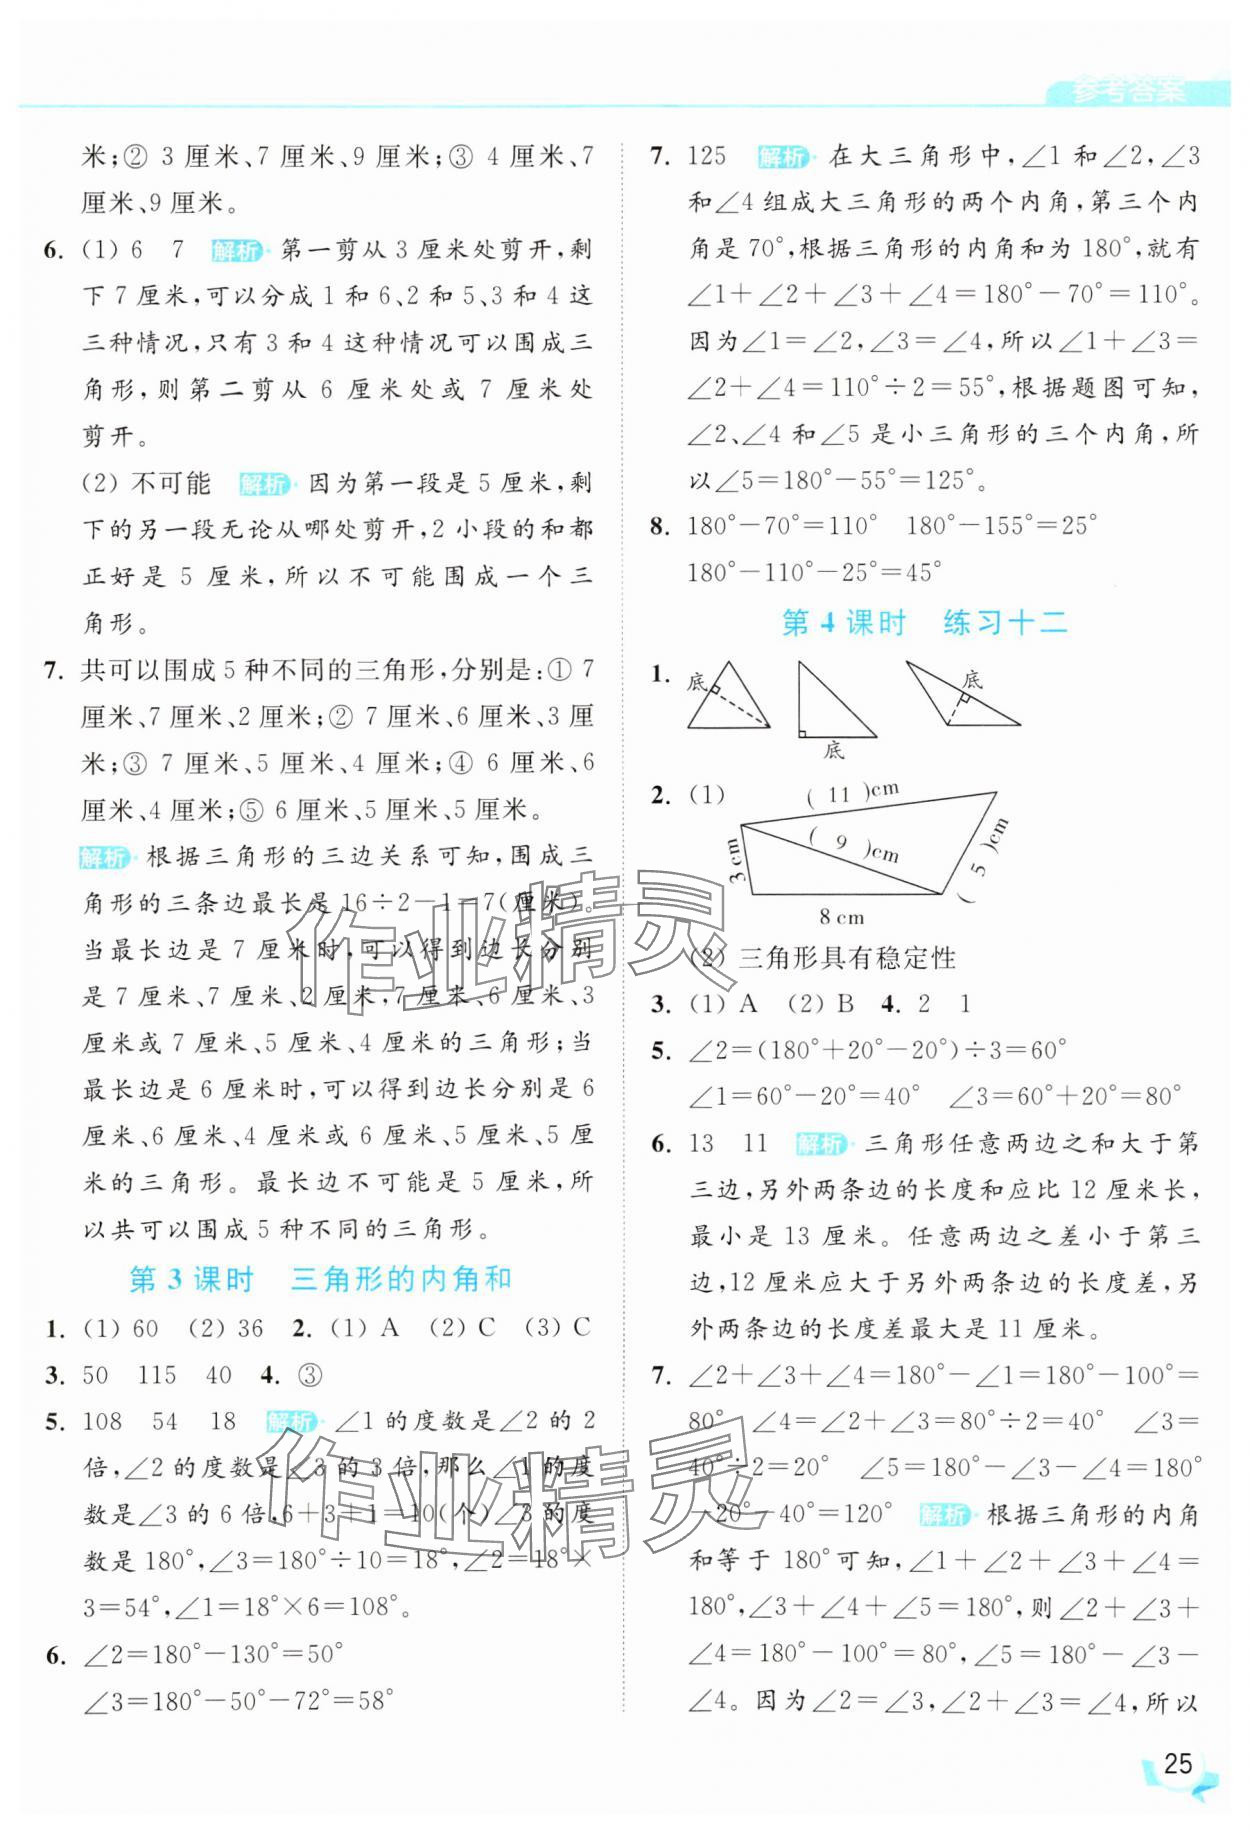 参考答案
米;② 3 厘米、7 厘米、9 厘米;③ 4 厘米、7
厘米、9 厘米。
6. (1) 6 7 解析 第一剪从 3 厘米处剪开,剩
下 7 厘米,可以分成 1 和 6、2 和 5、3 和 4 这
三种情况,只有 3 和 4 这种情况可以围成三
角形,则第二剪从 6 厘米处或 7 厘米处
剪开。
(2) 不可能 解析 因为第一段是 5 厘米,剩
下的另一段无论从哪处剪开,2 小段的和都
正好是 5 厘米,所以不可能围成一个三
角形。
7. 共可以围成 5 种不同的三角形,分别是:① 7
厘米、7 厘米、2 厘米;② 7 厘米、6 厘米、3 厘
米;③ 7 厘米、5 厘米、4 厘米;④ 6 厘米、6
厘米、4 厘米;⑤ 6 厘米、5 厘米、5 厘米。
解析 根据三角形的三边关系可知,围成三
角形的三条边最长是 16÷2-1=7(厘米)。
当最长边是 7 厘米时,可以得到边长分别
是 7 厘米、7 厘米、2 厘米,7 厘米、6 厘米、3
厘米或 7 厘米、5 厘米、4 厘米的三角形;当
最长边是 6 厘米时,可以得到边长分别是 6
厘米、6 厘米、4 厘米或 6 厘米、5 厘米、5 厘
米的三角形。最长边不可能是 5 厘米,所
以共可以围成 5 种不同的三角形。
第 3 课时 三角形的内角和
1. (1) 60 (2) 36 2. (1) A (2) C (3) C
3. 50 115 40 4. ③
5. 108 54 18 解析 ∠1 的度数是∠2 的 2
倍,∠2 的度数是∠3 的 3 倍,那么∠1 的度
数是∠3 的 6 倍,6+3+1=10(个)∠3 的度
数是 180°,∠3=180°÷10=18°,∠2=18°×
3=54°,∠1=18°×6=108°。
6. ∠2=180°-130°=50°
∠3=180°-50°-72°=58°
7. 125 解析 在大三角形中,∠1 和∠2,∠3
和∠4 组成大三角形的两个内角,第三个内
角是 70°,根据三角形的内角和为 180°,就有
∠1+∠2+∠3+∠4=180°-70°=110°。
因为∠1=∠2,∠3=∠4,所以∠1+∠3=
∠2+∠4=110°÷2=55°,根据题图可知,
∠2、∠4 和∠5 是小三角形的三个内角,所
以∠5=180°-55°=125°。
8. 180°-70°=110° 180°-155°=25°
180°-110°-25°=45°
第 4 课时 练习十二
1. 底 底 底
2. (1) ( 11 )cm
( 9 )cm
3 cm
( 5 )cm
8 cm
(2) 三角形具有稳定性
3. (1) A (2) B 4. 2 1
5. ∠2=(180°+20°-20°)÷3=60°
∠1=60°-20°=40° ∠3=60°+20°=80°
6. 13 11 解析 三角形任意两边之和大于第
三边,另外两条边的长度和应比 12 厘米长,
最小是 13 厘米。任意两边之差小于第三
边,12 厘米应大于另外两条边的长度差,另
外两条边的长度差最大是 11 厘米。
7. ∠2+∠3+∠4=180°-∠1=180°-100°=
80° ∠4=∠2+∠3=80°÷2=40° ∠3=
40°÷2=20° ∠5=180°-∠3-∠4=180°
-20°-40°=120° 解析 根据三角形的内角
和等于 180°可知,∠1+∠2+∠3+∠4=
180°,∠3+∠4+∠5=180°,则∠2+∠3+
∠4=180°-100°=80°,∠5=180°-∠3-
∠4。因为∠2=∠3,∠2+∠3=∠4,所以
25
作业精灵
作业精灵